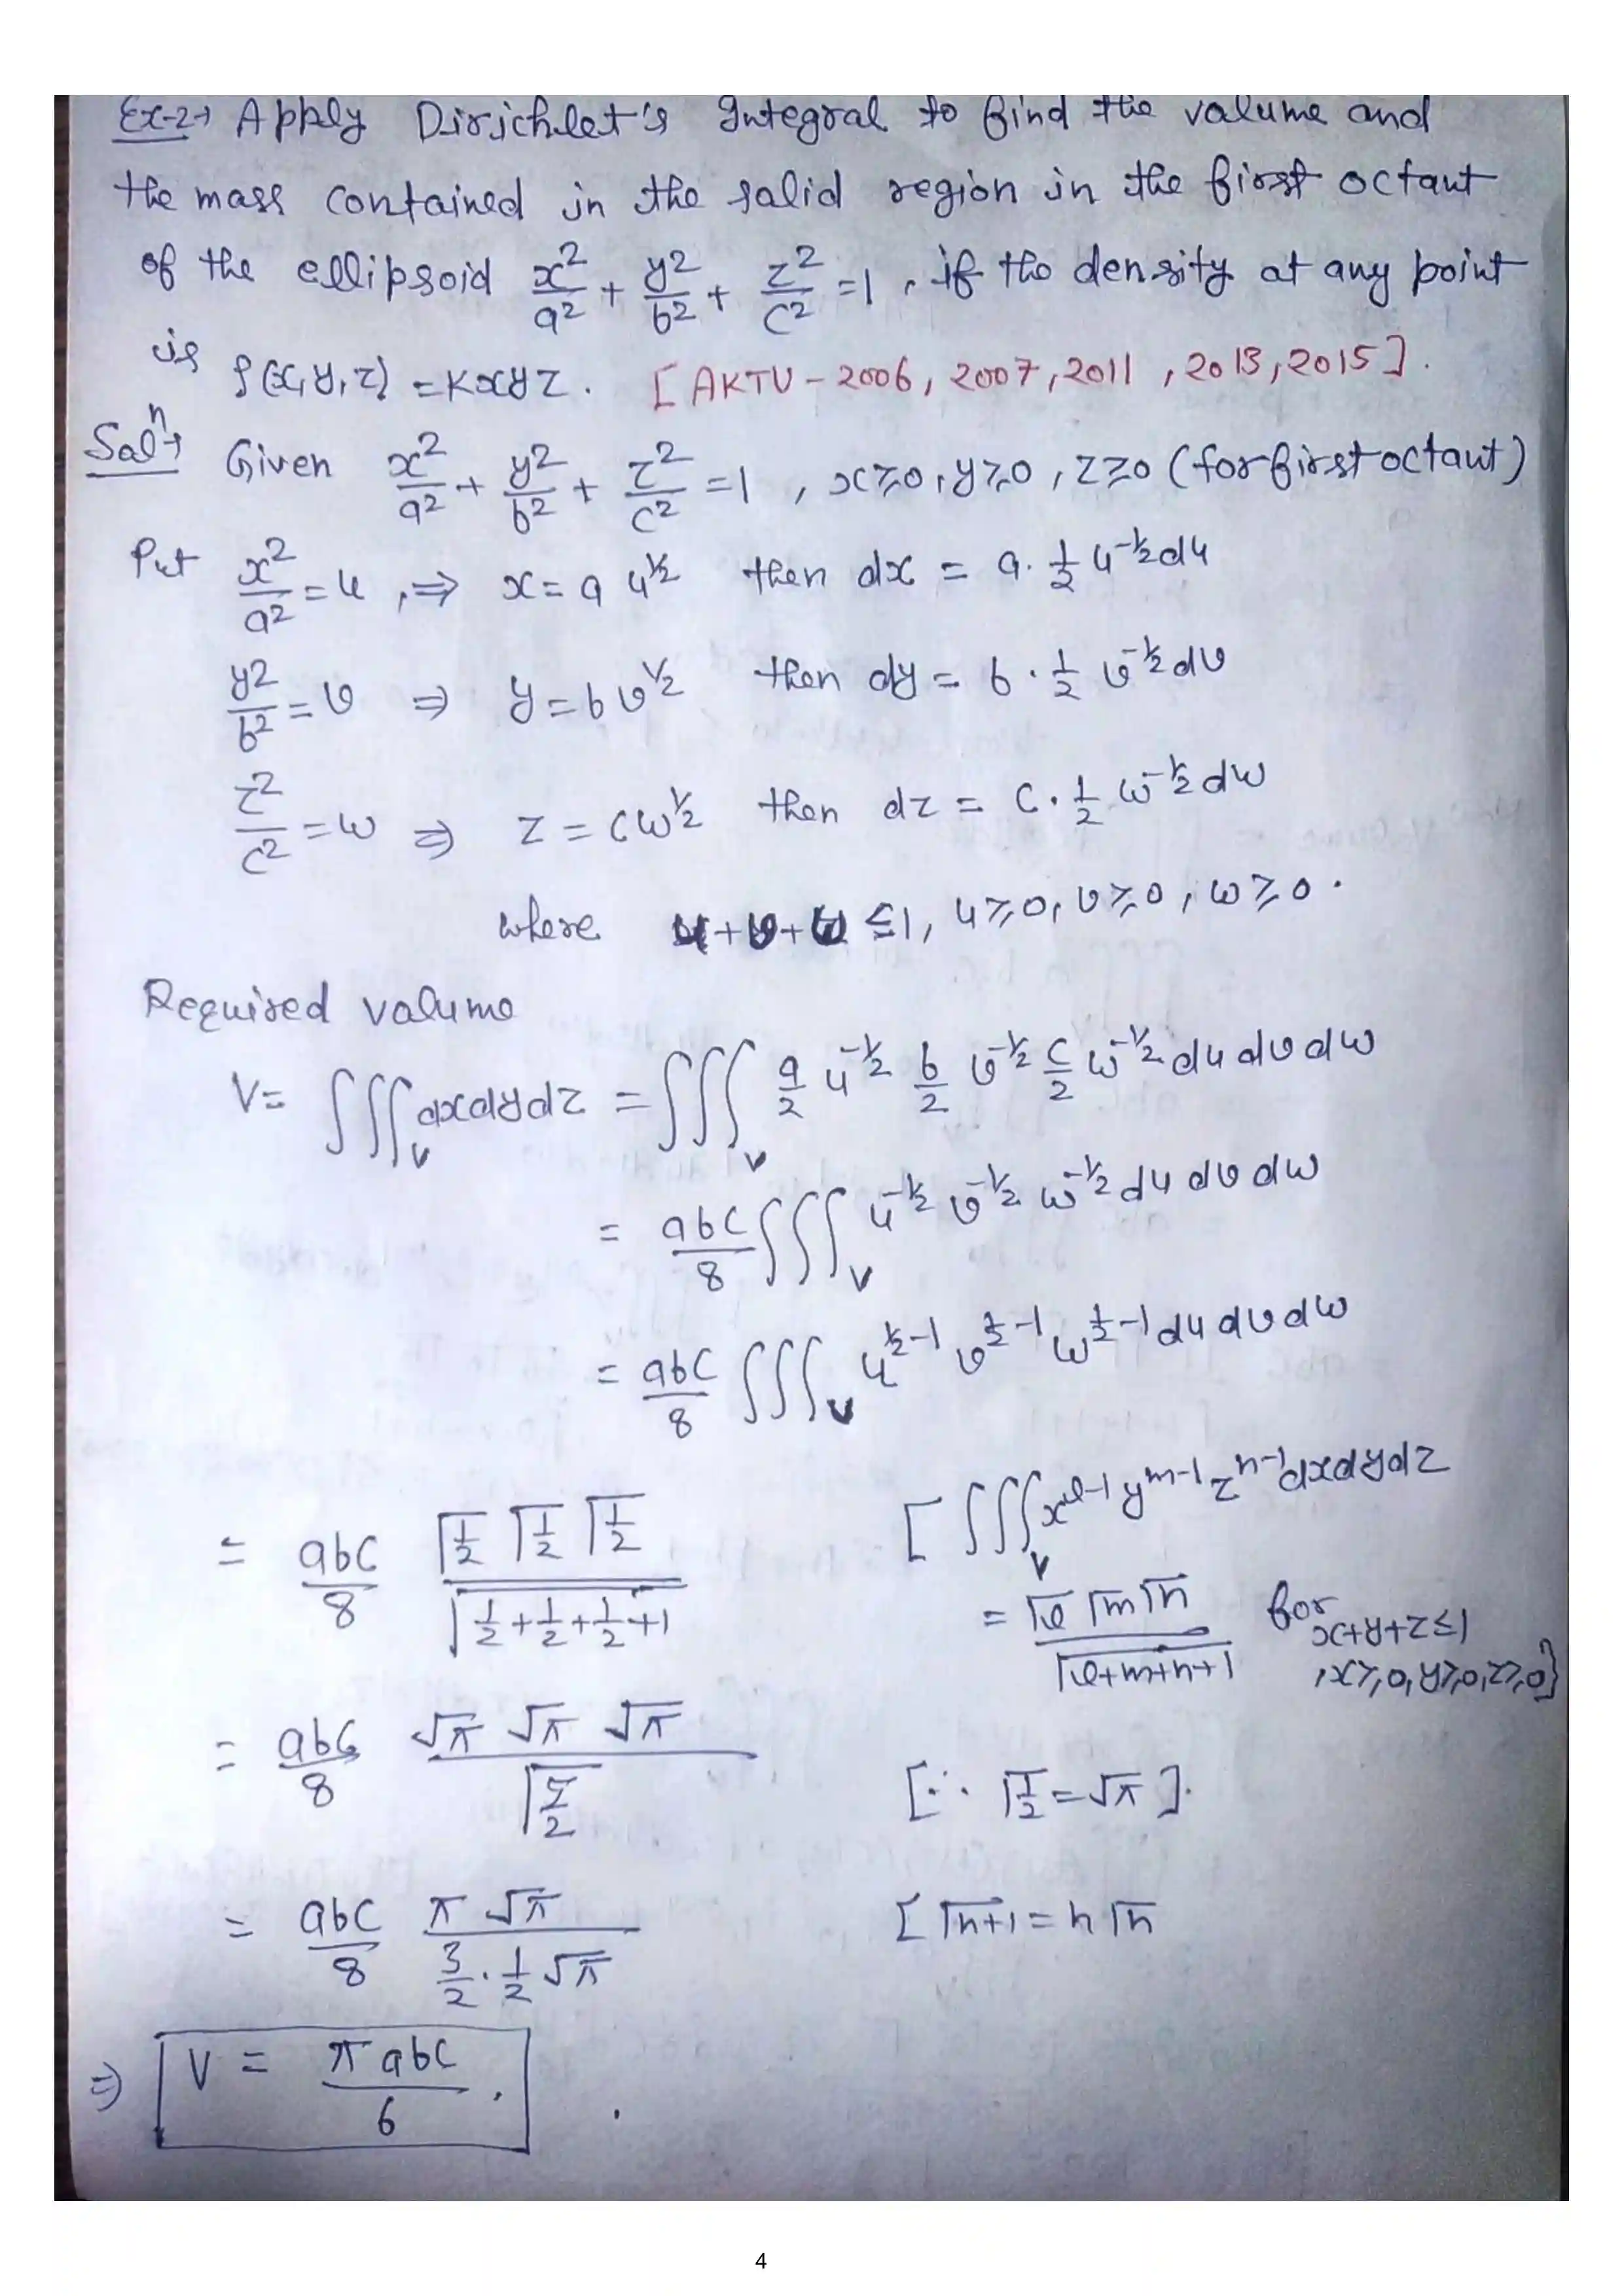 Ex-2→ Apply Dirichlet's Integral to find the volume and
the mass contained in the solid region in the first octant
of the ellipsoid x²/a² + y²/b² + z²/c² = 1, if the density at any point
is ρ(x,y,z) = Kxyz. [AKTU - 2006, 2007, 2011, 2013, 2015].
Solⁿ→ Given x²/a² + y²/b² + z²/c² = 1, x≥0, y≥0, z≥0 (for first octant)
Put x²/a² = u, ⇒ x = a u^{1/2} then dx = a·1/2 u^{-1/2} du
y²/b² = v ⇒ y = b v^{1/2} then dy = b·1/2 v^{-1/2} dv
z²/c² = w ⇒ z = c w^{1/2} then dz = c·1/2 w^{-1/2} dw
where u+v+w ≤ 1, u≥0, v≥0, w≥0.
Required volume
V = ∭_V dxdydz = ∭_V a/2 u^{-1/2} b/2 v^{-1/2} c/2 w^{-1/2} du dv dw
= abc/8 ∭_V u^{-1/2} v^{-1/2} w^{-1/2} du dv dw
= abc/8 ∭_V u^{1/2-1} v^{1/2-1} w^{1/2-1} du dv dw
= abc/8 Γ1/2 Γ1/2 Γ1/2 / Γ(1/2+1/2+1/2+1) [∭_V x^{l-1} y^{m-1} z^{n-1} dxdydz
= Γl Γm Γn / Γ(l+m+n+1) for x+y+z≤1
, x≥0, y≥0, z≥0]
= abc/8 √π √π √π / Γ5/2 [∵ Γ1/2 = √π].
= abc/8 π√π / (3/2 · 1/2 √π) [Γn+1 = nΓn
⇒ V = πabc/6.
4